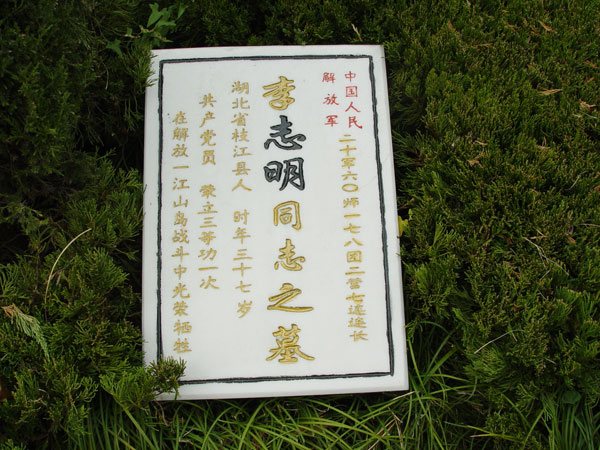 中国人民
解放军
二十军六〇师一七八团二营七连连长
李志明同志之墓
湖北省枝江县人 时年三十七岁
共产党员 荣立三等功一次
在解放一江山岛战斗中光荣牺牲